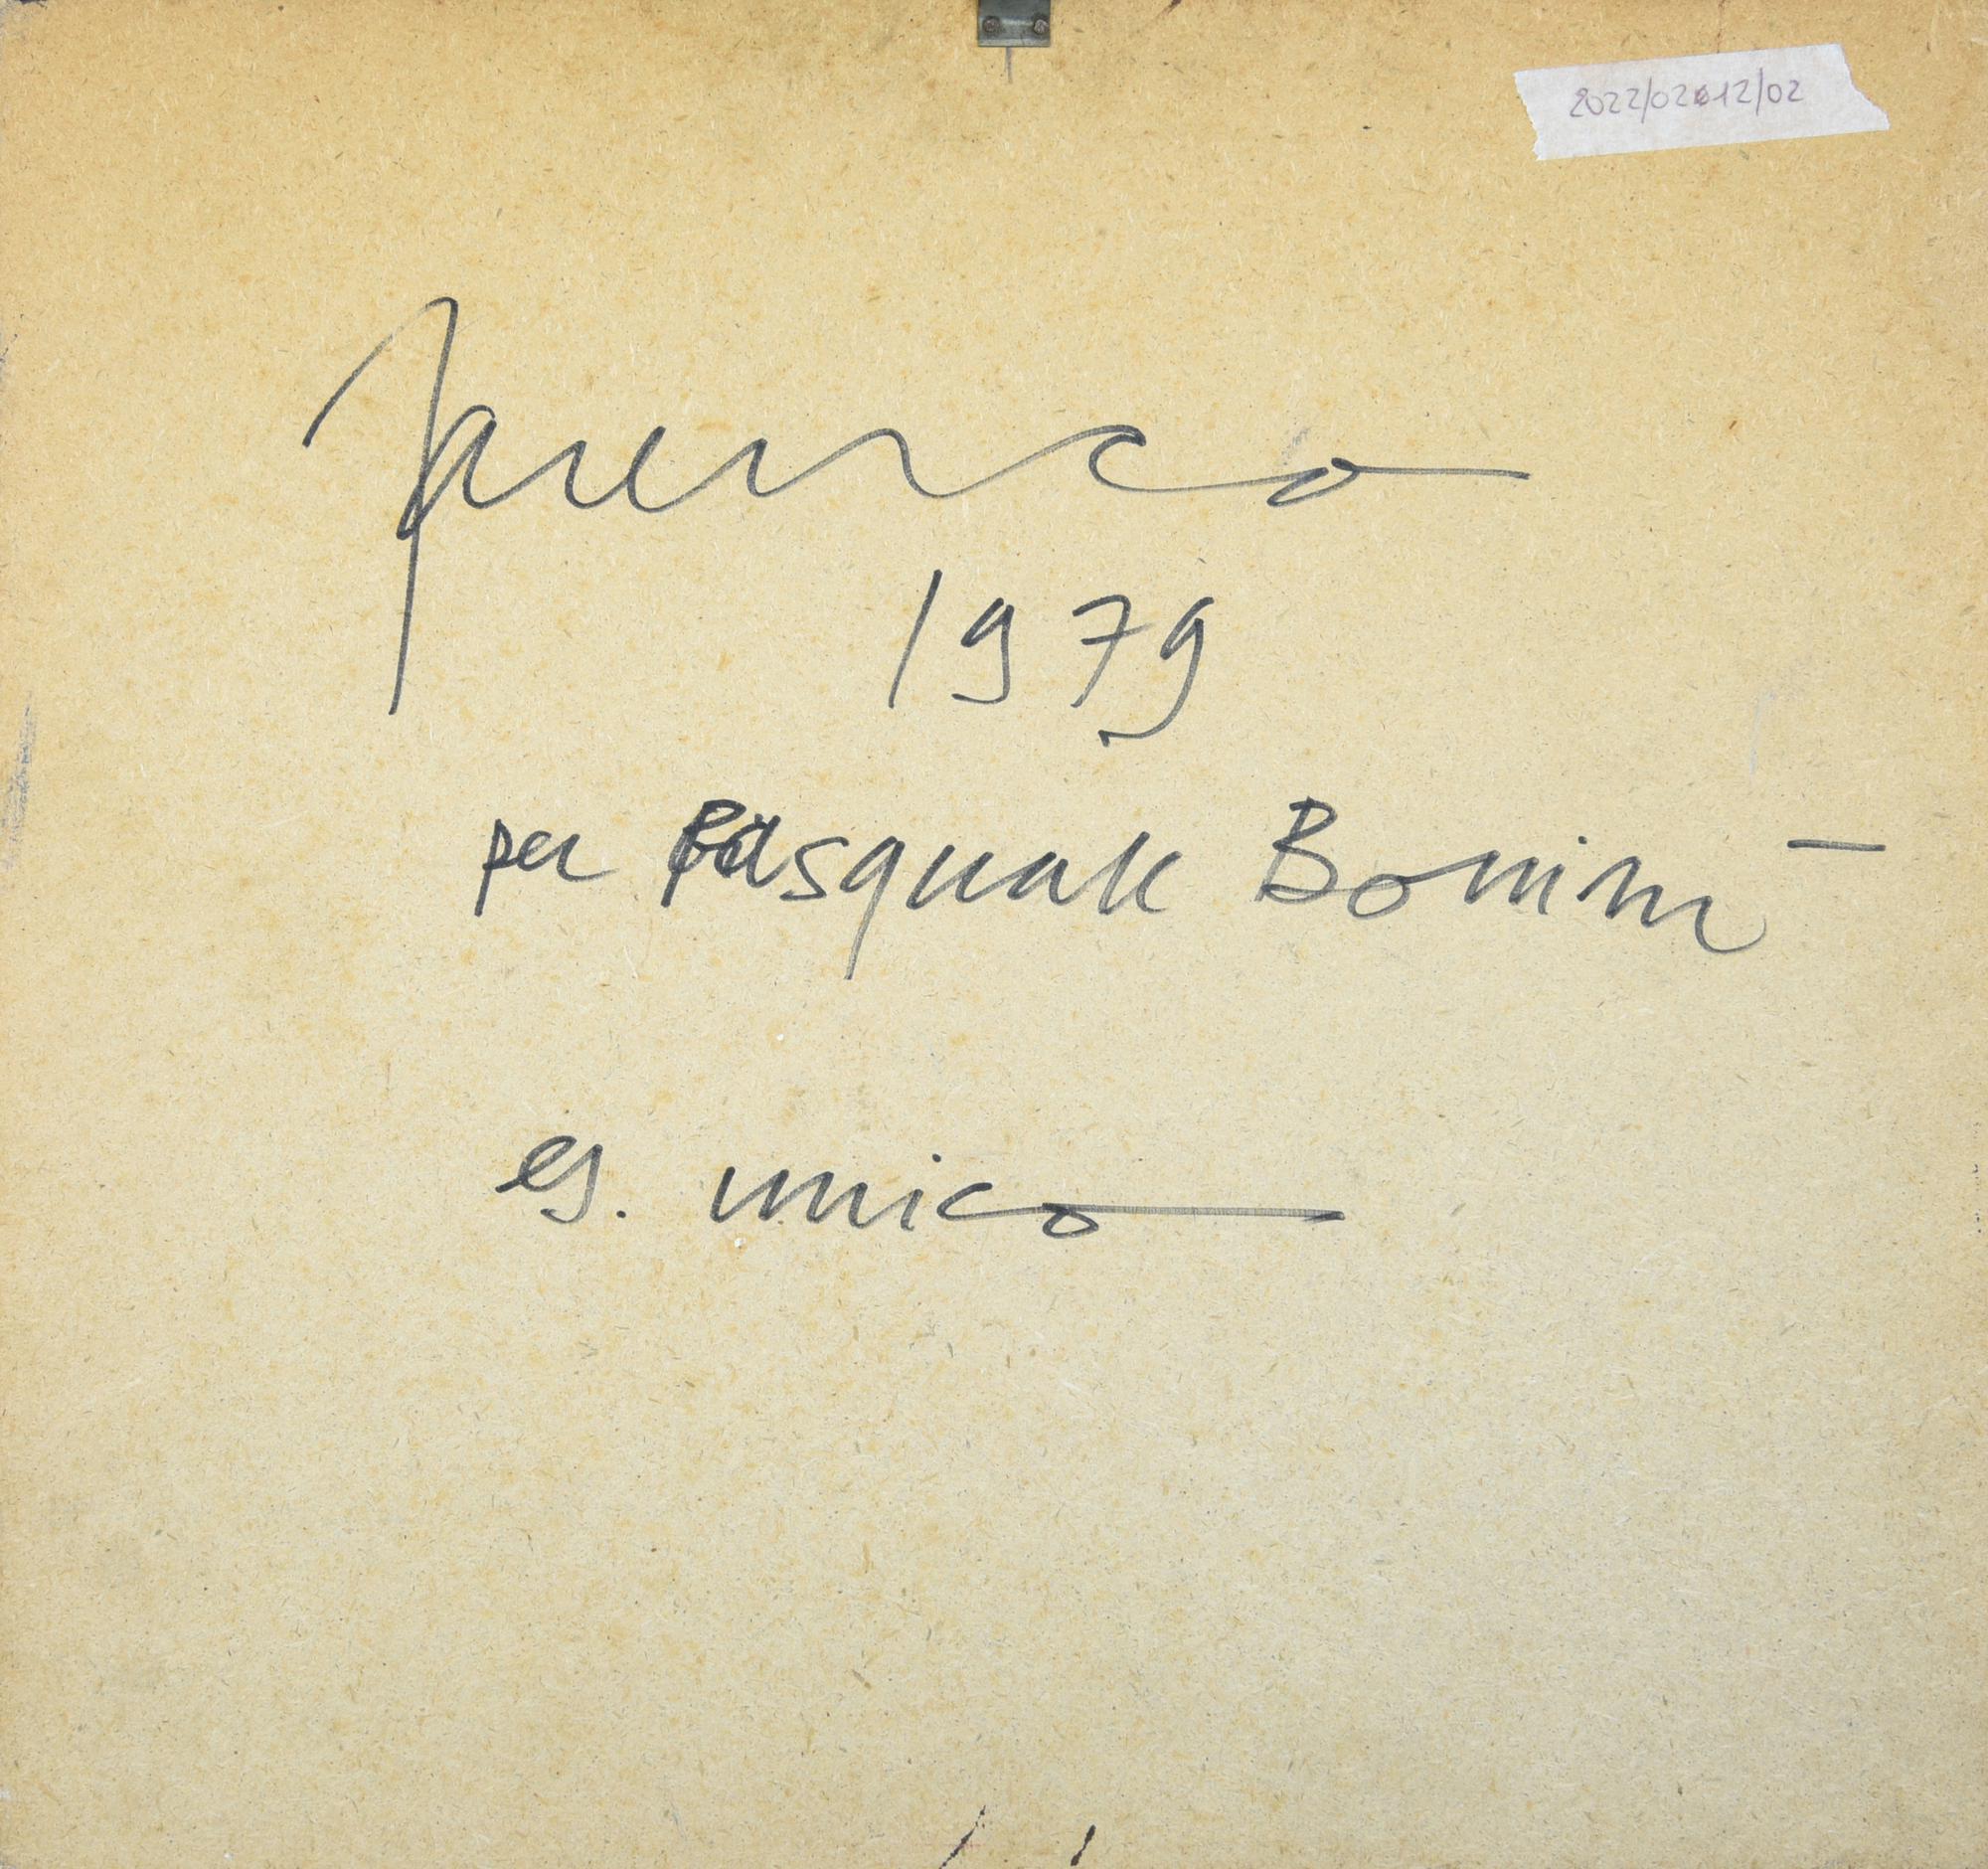 2022/02612/02
1979
per Pasquale Bonini
es. unico